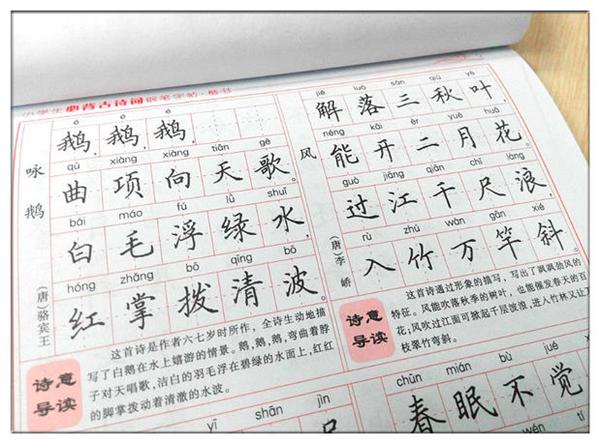 小学生必背古诗词钢笔字帖·楷书
咏鹅
(唐)骆宾王
é é é
鹅，鹅，鹅，
qū xiàng xiàng tiān gē
曲项向天歌。
bái máo fú lǜ shuǐ
白毛浮绿水，
hóng zhǎng bō qīng bō
红掌拨清波。
诗意
导读
这首诗是作者六七岁时所作，全诗生动地描
写了白鹅在水上嬉游的情景。鹅，鹅，鹅，弯曲着脖
子对天唱歌，洁白的羽毛浮在碧绿的水面上，红红
的脚掌拨动着清澈的水波。
yī shān jìn
风
(唐)李峤
jiě luò sān qiū yè
解落三秋叶，
néng kāi èr yuè huā
能开二月花。
guò jiāng qiān chǐ làng
过江千尺浪，
rù zhú wàn gān xié
入竹万竿斜。
诗意
导读
这首诗通过形象的描写，写出了飒飒劲风的
特征。风能吹落秋季的树叶，也能催发春天的百
花；风吹过江面可掀起千层波浪，进入竹林又让
枝翠竹弯斜。
chūn mián bù jué
春眠不觉